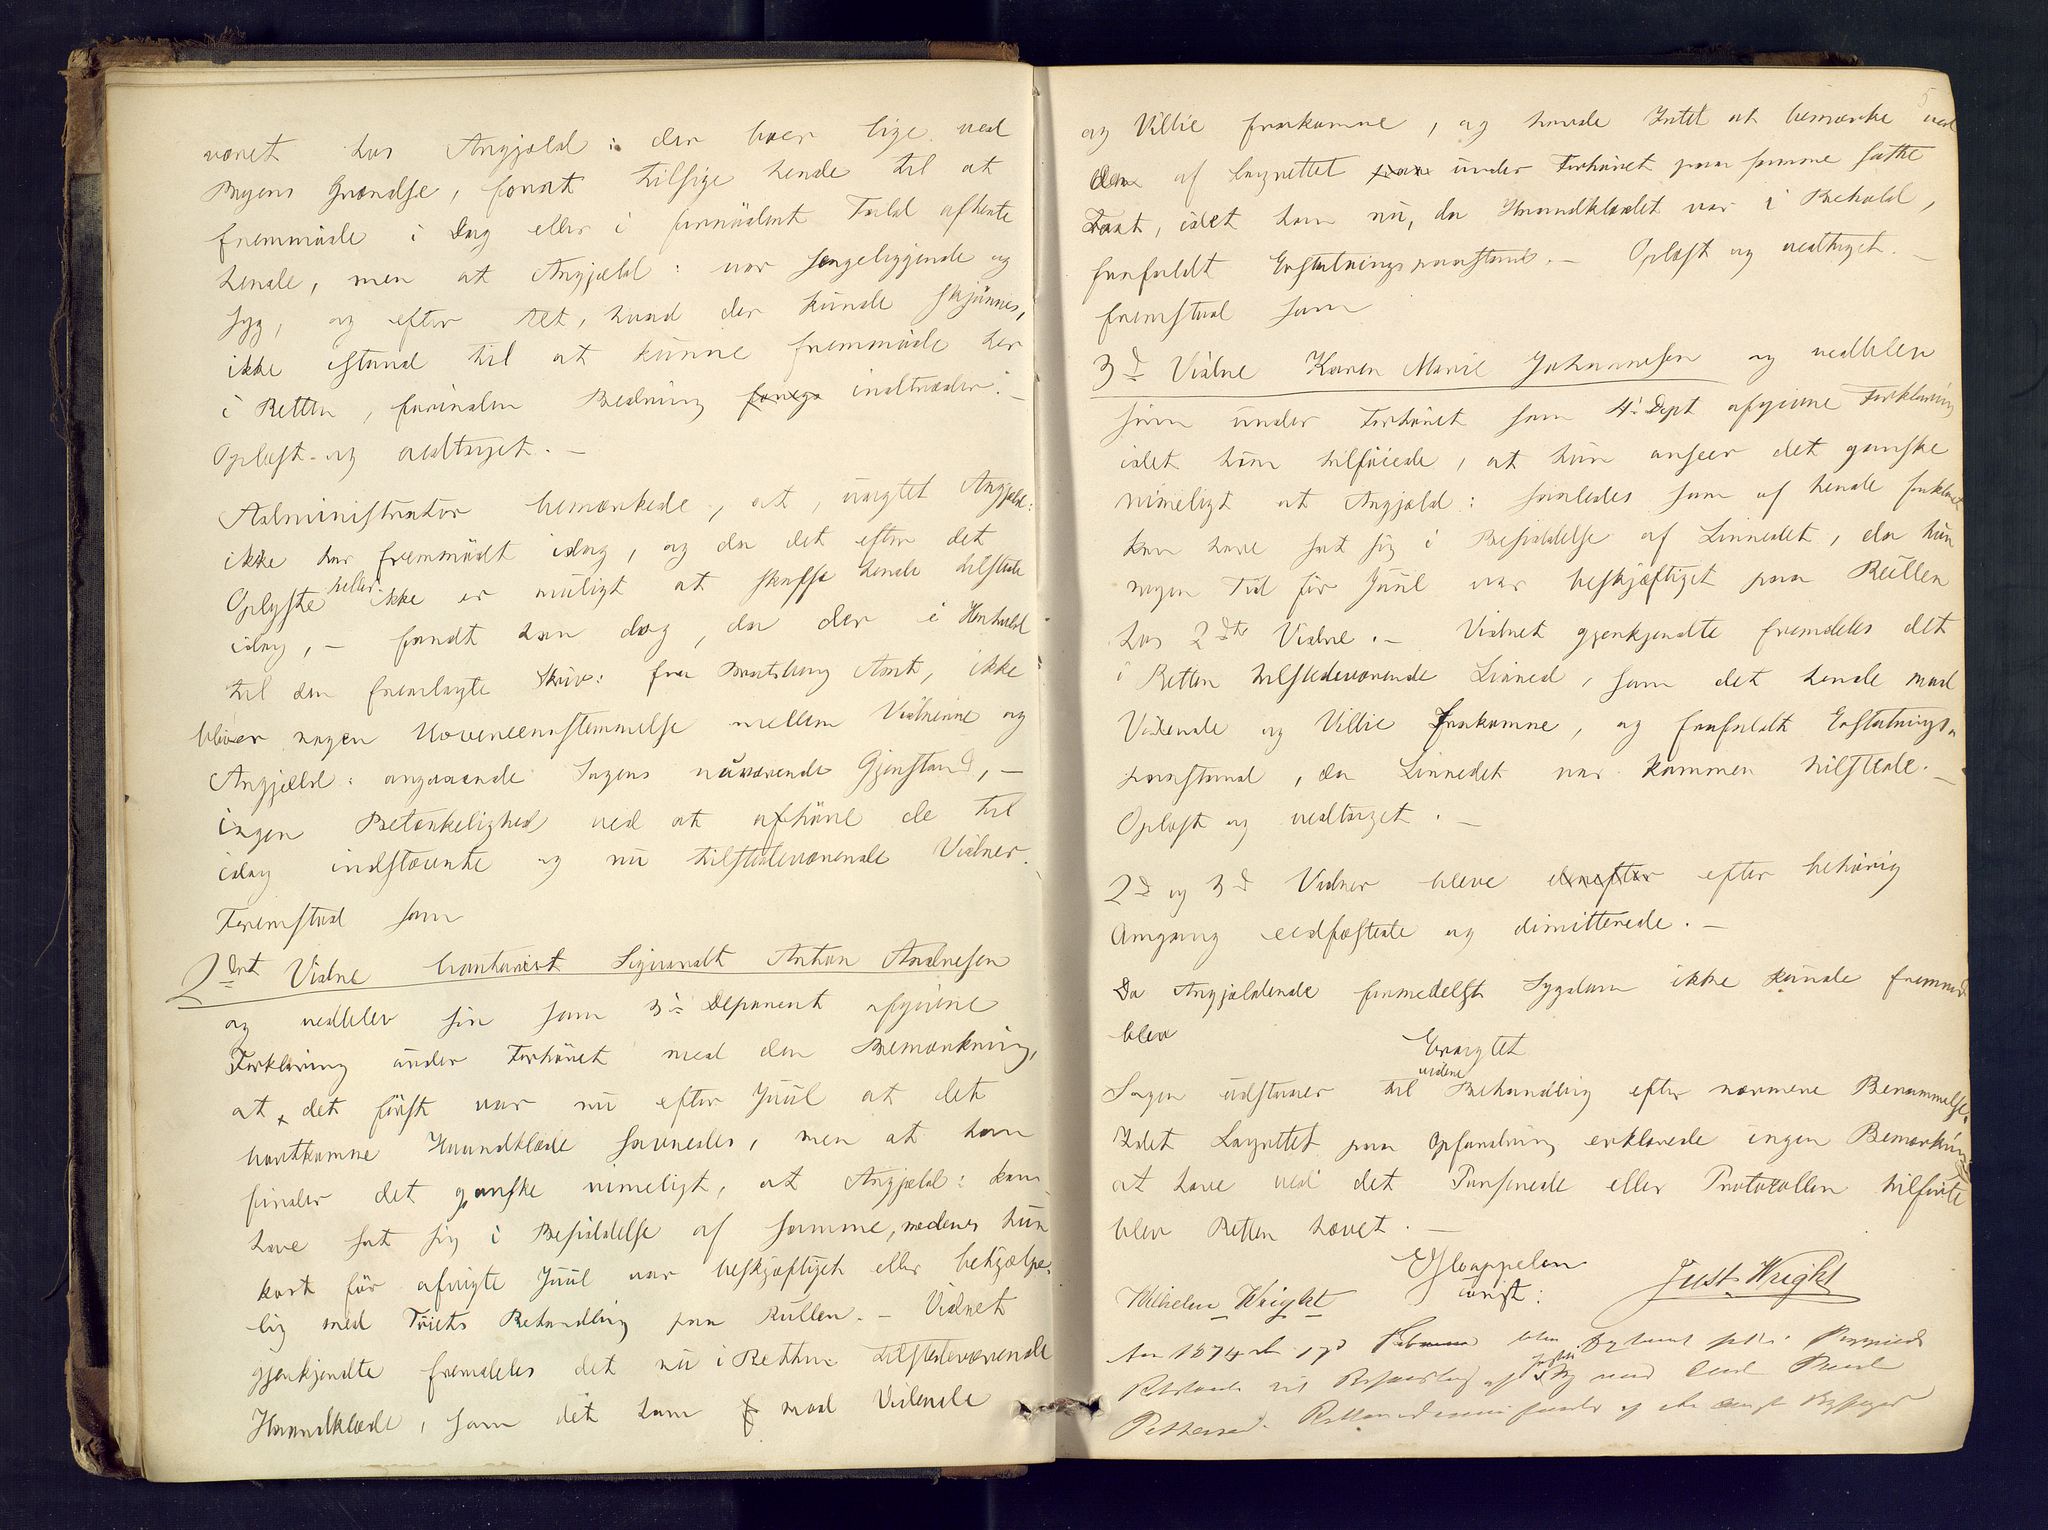 været hos Angjæld: der boer lige ved
Byens Grændse, forat tilsige hende til at
fremmøde i Dag eller i fornødent Fald afhente
hende, men at Angjæld: var sengeliggende og
syg, og efter det, hvad der kunde skjønnes,
ikke istand til at kunne fremmøde her
i Retten, forinden Bedring indtræder. —
Oplæst og vedtaget. —
Administrator bemærkede, at, uagtet Angjeld:
ikke har fremmødt idag, og da det efter det
Oplyste heller ikke er muligt at skaffe hende tilstede
idag, — fandt han dog, da der i Henhold
til den fremlagte Skriv: fra Bratsberg Amt, ikke
bliver nogen Uoverensstemmelse mellem Vidnerne og
Angjæld: angaaende Sagens nuværende Gjenstand, —
ingen Betænkelighed ved at afhøre de til
idag indstævnte og nu tilstedeværende Vidner.
Fremstod som
2det Vidne Contorist Sigvardt Anton Andresen
og vedblev sin som 3die Deponent afgivne
Forklaring under Forhøret med den Bemærkning,
at det først var nu efter Juul at det
bortkomne Haandklæde savnedes, men at han
finder det ganske rimeligt, at Angjæld: kan
have sat sig i Besiddelse af samme, medens hun
kort før afvigte Juul var beskjæftiget eller behjælpe-
lig med Tøiets Behandling paa Rullen. — Vidnet
gjenkjendte fremdeles det nu i Retten tilstedeværende
Haandklæde, som det ham mod Vidende
5
og Villie frakomne, og havde Intet at bemærke ved
den af Lagrettet under Forhøret paa samme satte
Taxt, idet han nu, da Haandklædet var i Behold,
frafaldt Erstatningspaastand. — Oplæst og vedtaget. —
Fremstod som
3d Vidne Karen Marie Johannesen og vedblev
sin under Forhøret som 4d Dept afgivne Forklaring
idet hun tilføiede, at hun anseer det ganske
rimeligt at Angjæld: saaledes som af hende forklaret
kan have sat sig i Besiddelse af Linnedet, da hun
nogen Tid før Juul var beskjæftiget paa Rullen
hos 2det Vidne. — Vidnet gjenkjendte fremdeles det
i Retten tilstedeværende Linned, som det hende mod
Vidende og Villie frakomne, og frafaldt Erstatnings-
paastand, da Linnedet var kommen tilstede. —
Oplæst og vedtaget. —
2d og 3d Vidner bleve efter behørig
Omgang eedfæstede og dimitterede. —
Da Angjældende formedelst Sygdom ikke kunde fremmøde
blev
Eragtet
Sagen udstaaer til videre Behandling efter nærmere Berammelse.
Idet Lagrettet paa Opfordring erklærede ingen Bemærkning
at have ved det Passerede eller Protocollen tilførte
blev Retten hævet. —
const:
Wilhelm Wright Just Wright
Aar 1874 den 17d Februar blev